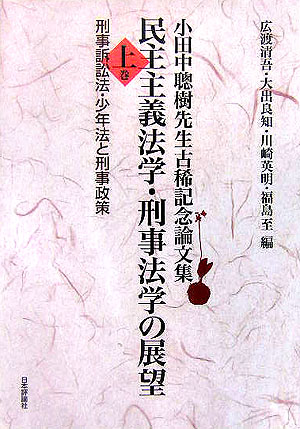 広渡清吾・大出良知・川崎英明・福島至 編
小田中聰樹先生古稀記念論文集
民主主義法学・刑事法学の展望
上巻
刑事訴訟法・少年法と刑事政策
日本評論社